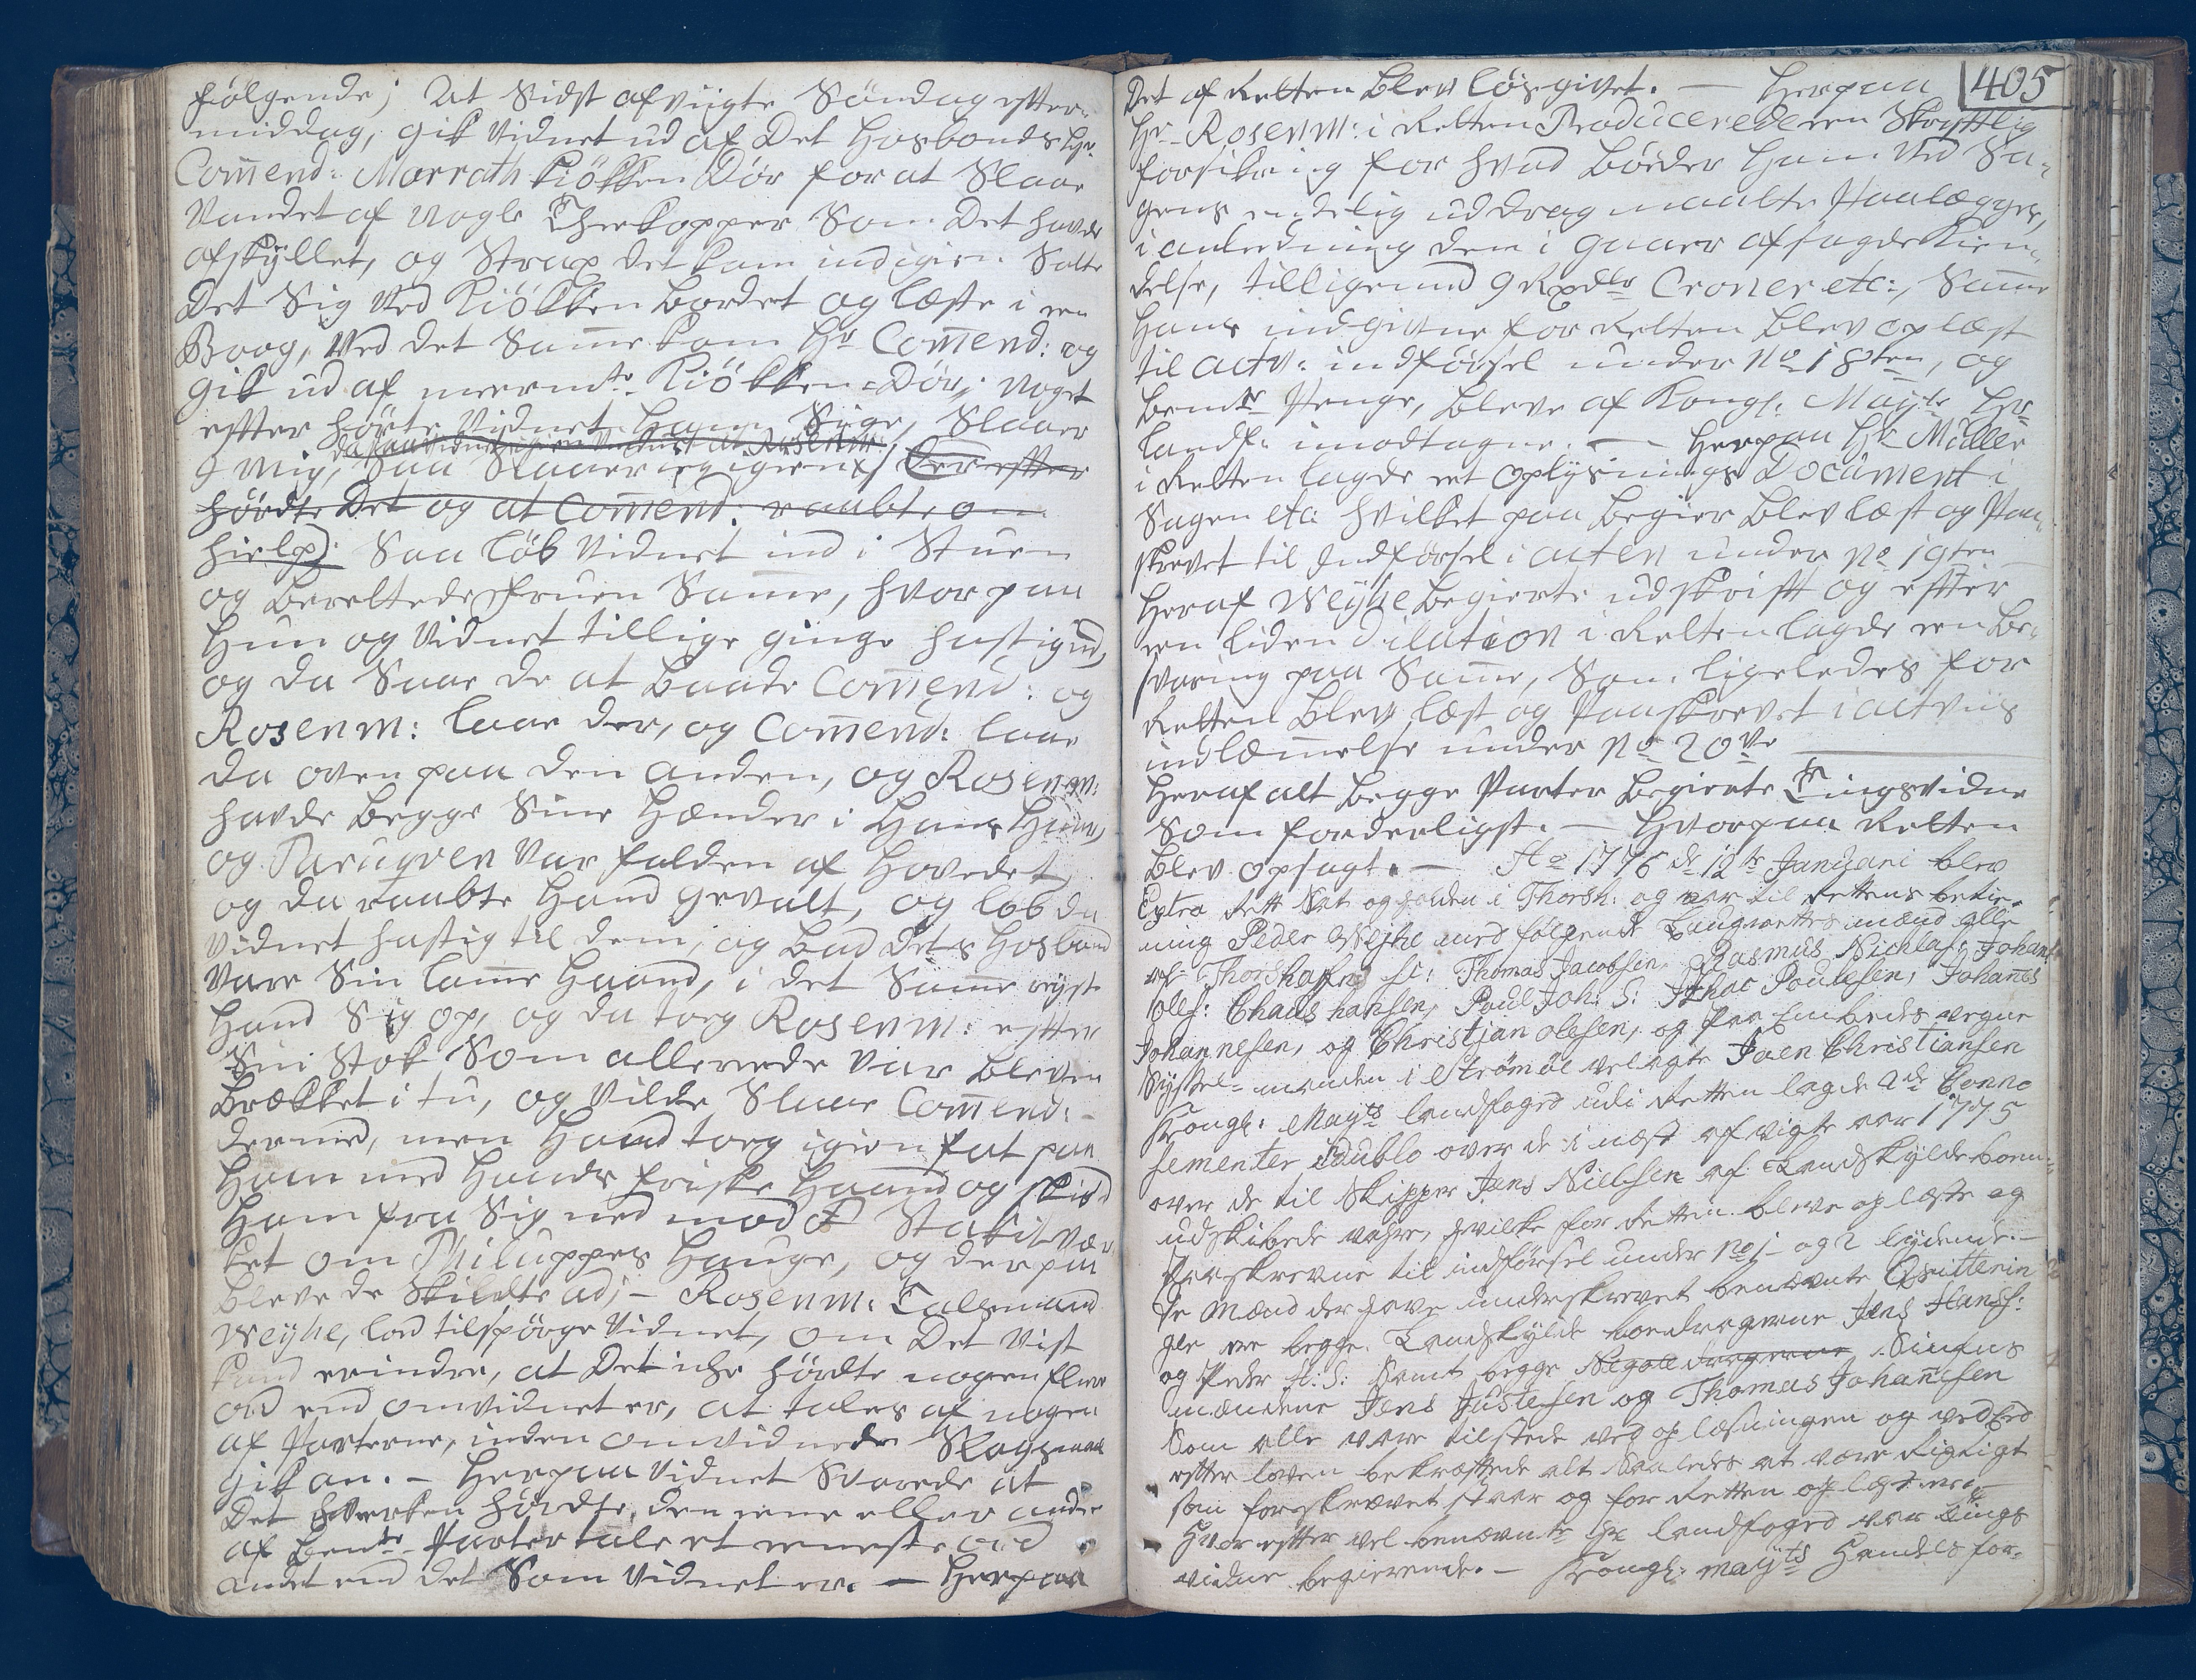 følgende; At Sidst afviigte Søndag efter-
middag, gik Vidnet ud af Det Hosbonds Hr.
Com̄end: Marrath Kiökken Dør for at Slaae
Vandet af nogle Theekopper Som Det hafde
afskÿllet, og Strax det kom ind igien Satte
Det Sig ved Kiökken Bordet og læste i en
Boog, Ved det Sam̄e kom Hr Com̄end: og
gik ud af meermte. Kiökken-Dör, noget
efter hørte Vidnet Ham Sige, Slaaer
I mig, Saa Slaaer jeg igien
da Saae Vidnet at Rosenm:
Derefter
hørdte Det og at Com̄end: raabte om
hielp). Saa løb Vidnet ind i Stuen
og berettede Fruen Sam̄e, hvorpaa
Hun og Vidnet tillige ginge hastig ud,
og da Saae de at baade Com̄end: og
Rosenm: laae der, og Com̄end: laae
da oven paa den anden, og Rosenm:
havde begge Sine Hænder i Hans Haar,
og Paruqven var falden af Hovedet,
og da raabte Hand gevalt, og løb da
Vidnet hastig til dem, og bad Dets Hosbond
Vare Sin lam̄e Haand, i det Sam̄e reyste
Hand Sig op, og da tog Rosenm: efter
Sin Stok Som allerede var bleven
Brækket i tu, og vilde Slaae Com̄end:
dermed, men Hand tog igien fat paa
Ham med Hands friske Haand og skiød
Ham fra Sig ned mod Stakit-Vær-
ket om Philuppes Hauge, og derpaa
bleve de Skildte ad; — Rosenm: Talsmand
Weÿhe, lod tilspörge Vidnet, om Det Vist
kand erindre, at Det icke hørdte nogen fleere
ord end omvidnet er, at tales af nogen
af Parterne, inden omvidnede Slagsmaal
gik an. — Herpaa Vidnet Svarede at
Det hverken hørdte, den eene eller anden
af bemte. Parter tale et eeneste ord
andet end det Som Vidnet er. — Herpaa
405
Det af Retten blev løsgivet. — Herpaa
Hr. Rosenm: i Retten Producerede en Skrifftlig
forsikring for hvad Bøder Ham Ved Sa-
gens endelig uddrag maatte Paalægges,
i anledning den i gaaer afsagde Kien-
delse, tilligemed 9 Rxdlr Croner etc:, Sam̄e
Hans indgivne for Retten blev oplæst
til actv: indførsel under No 18ten, og
bemte Penge, bleve af Kongl: Mayts Hr
Landf: imodtagne. — Herpaa Hr Müller
i Retten lagde et Oplÿsnings Document i
Sagen etc: hvilket paa begier blev læst og Paa-
skrevet til Indførsel i acten under No 19ten
Heraf Weÿhe begierte udskrift og efter
en liden Dilation i Retten lagde en be-
svaring paa Sam̄e, Som ligeledes for
Retten blev læst og Paaskrevet i actviis
indlæm̄else under No 20ve
Heraf alt begge Parter begierte Tingsvidne
Som forderligst. — Hvorpaa Retten
blev opsagt. — Ao 1776 d: 12te Januari blev
Extra Rett Sat og holden i Thorsh: og var til Rettens betie-
ning Peder Weyhe med følgende Laugrettesmænd alle
af Thorshafn sc: Thomas Jacobsen, Rasmus Nicklas: Johan:
oles: Chaus hansen, Poul Joh: S: Ishac Poulsen, Johanes
Johannesen, og Christjan olesen, og paa Embeds vegne
Syssel-manden i Strømöe velagte Joen Christiansen
Kongl: Mayts landfoged udi Retten lagde 2de Conno
sementer i Dublo over de i næst afvigte aar 1775
over de til Skipper Jens Nielsen af Landskylde boem-
udskibede vahre, hvilke for Retten bleve oplæste og
Paaskrevne til indførsel under No 1 og 2 lydende. —
De Mænd der have underskrevet benævnte Qvitterin
ger ere begge Landskylde boedragerne Jens Hanss:
og Peder H: S: Samt begge Negotie dragerne Siufus
mændene Jens Justesen og Thomas Johan̄esen
Som alle vare tilstede ved oplæsningen og ved Eed
efter loven bekræftede alt Saaledes at være Rigtigt
som foreskrævet staar og for Retten oplæst er. —
Hvorefter vel benævnte Hr landfoged var Tings
vidne begierende. — Kongl: Mayts Handels for-